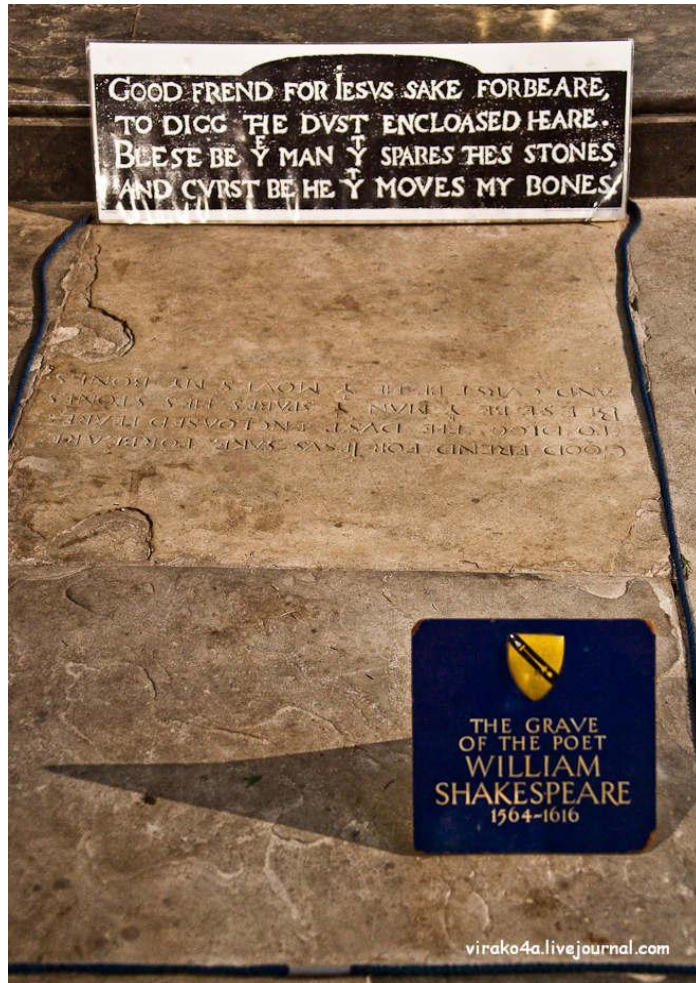 GOOD FREND FOR IESVS SAKE FORBEARE,
TO DIGG THE DVST ENCLOASED HEARE.
BLESE BE Yᴱ MAN Yᵀ SPARES THES STONES,
AND CVRST BE HE Yᵀ MOVES MY BONES.
GOOD FREND FOR IESVS SAKE FORBEARE
TO DIGG THE DVST ENCLOASED HEARE
BLESE BE Y MAN Y SPARES HES STONES
AND CVRST BE HE Y MOVES MY BONES
THE GRAVE
OF THE POET
WILLIAM
SHAKESPEARE
1564-1616
virako4a.livejournal.com